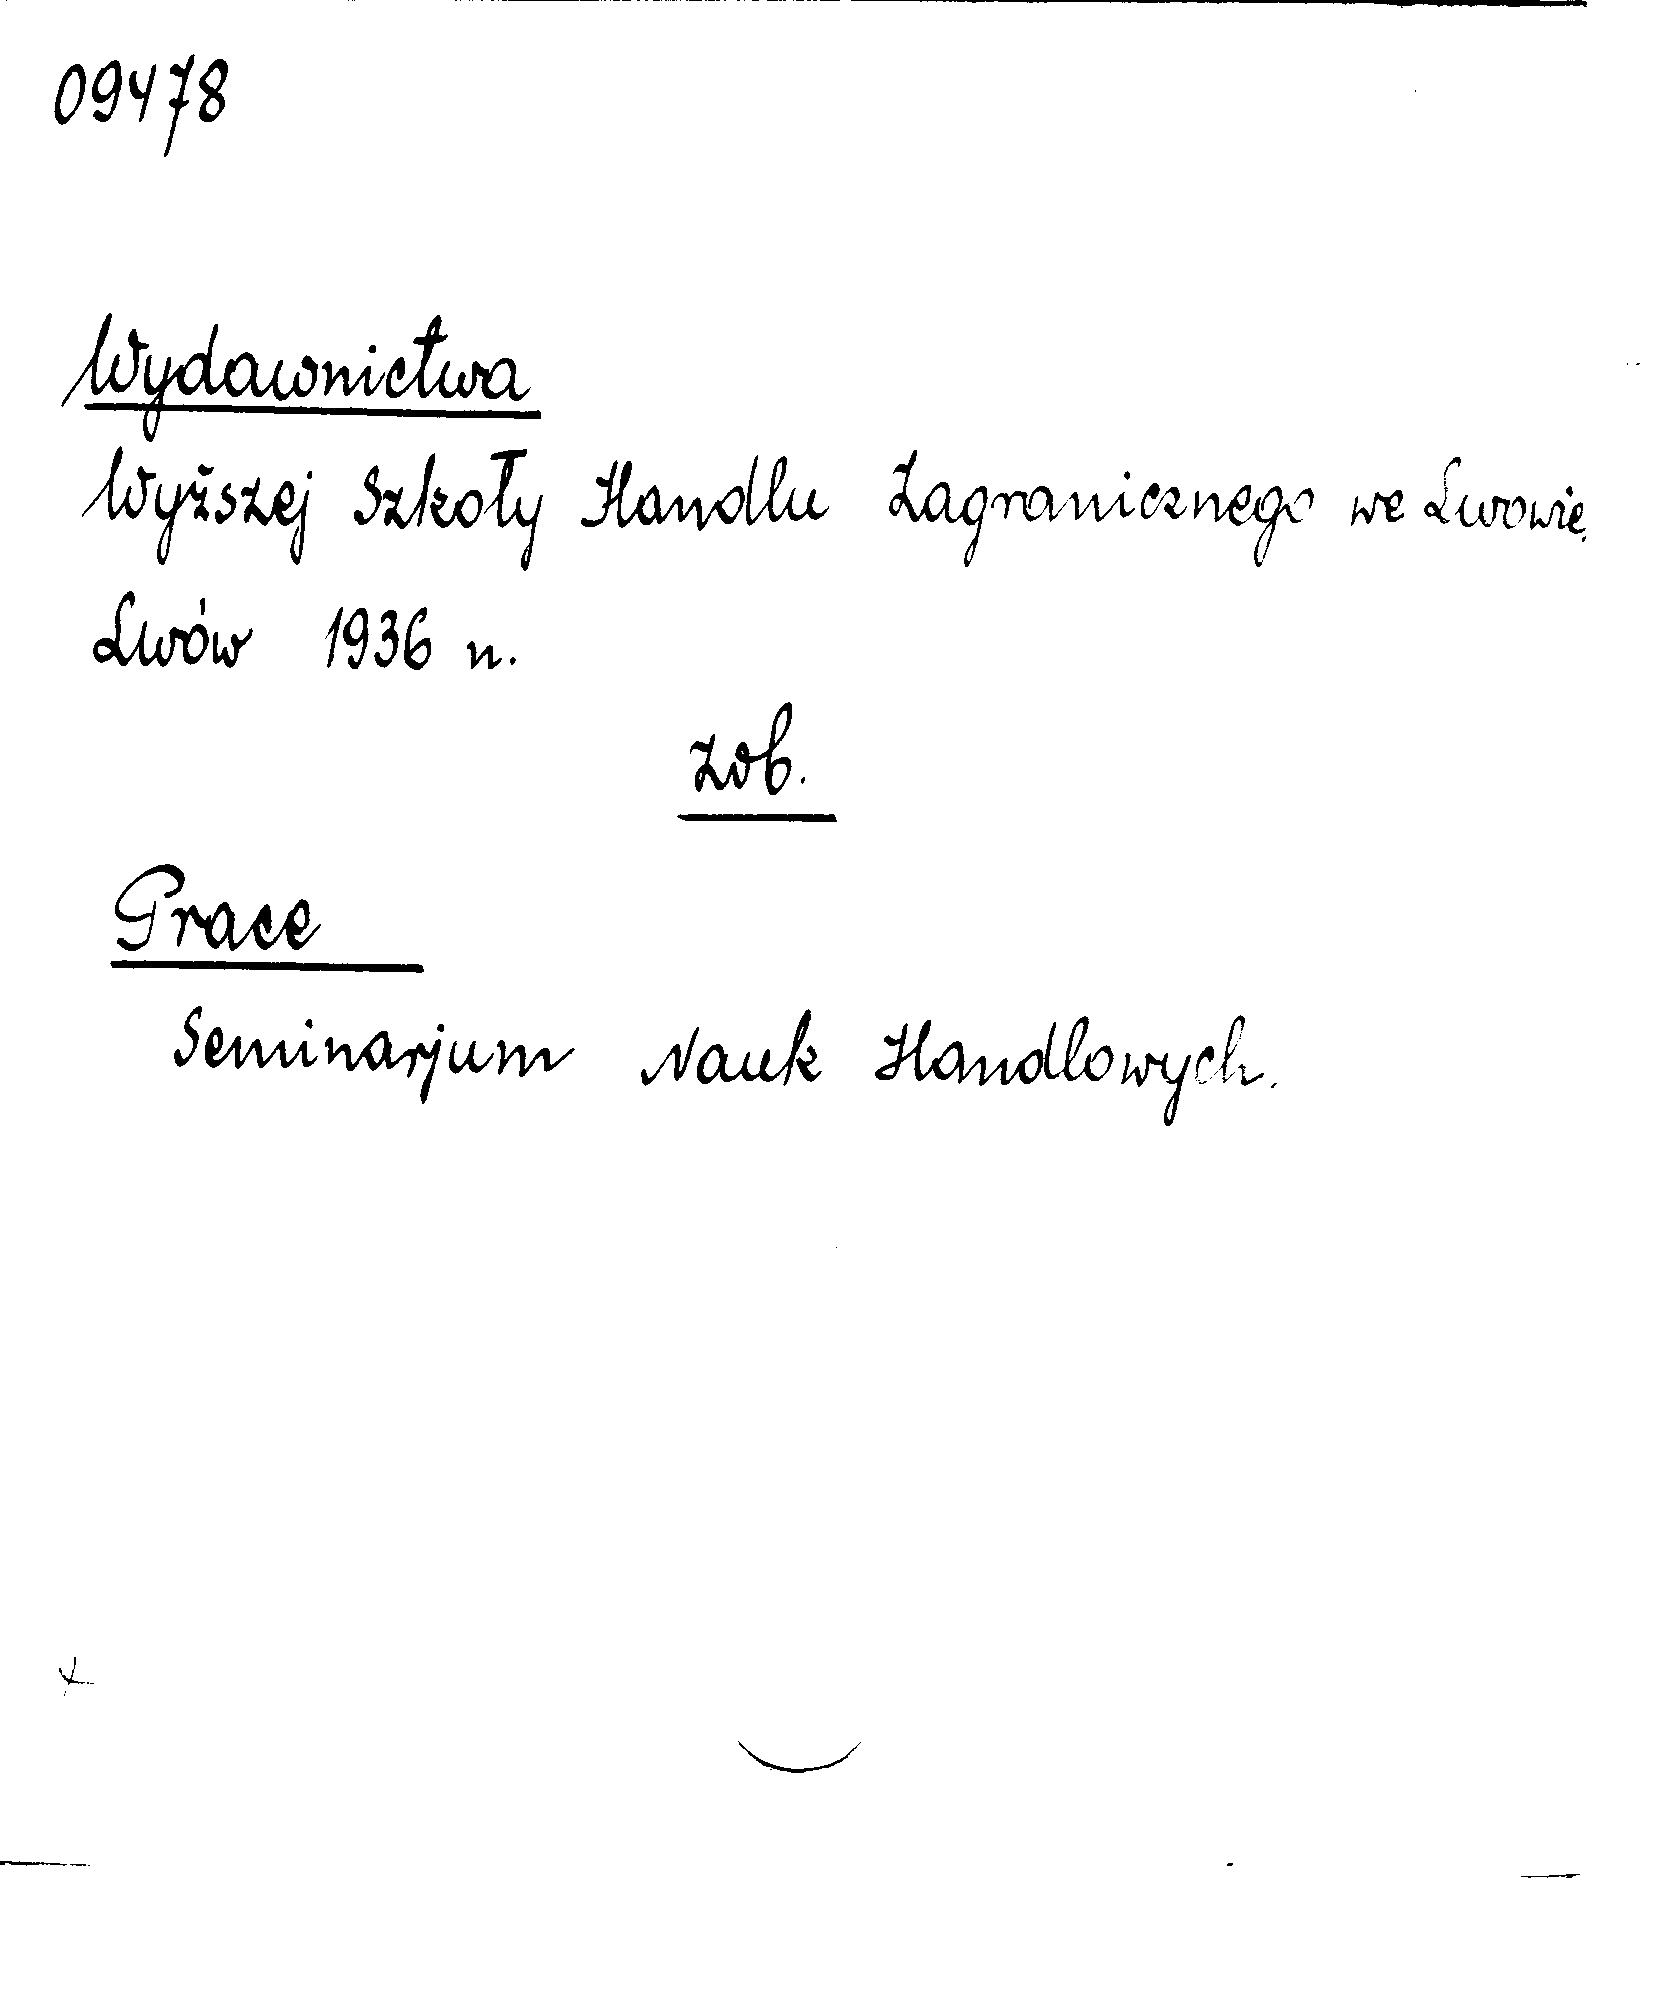 09478
Wydawnictwa
Wyższej Szkoły Handlu Zagranicznego we Lwowie.
Lwów 1936 n.
Zob.
Prace
Seminarjum Nauk Handlowych.